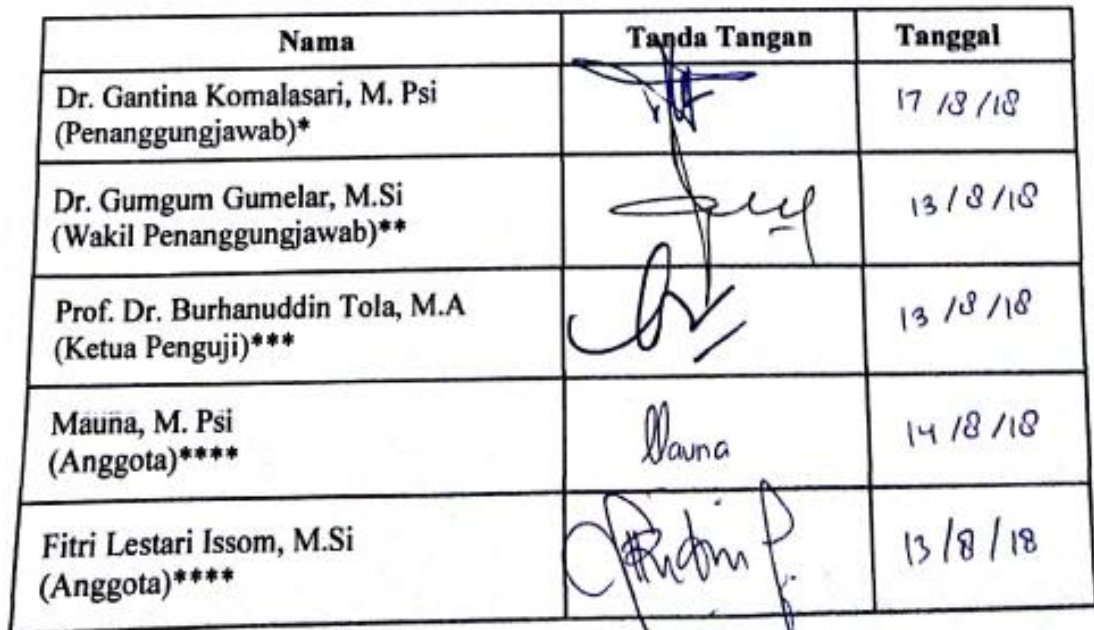 Nama Tanda Tangan Tanggal
Dr. Gantina Komalasari, M. Psi
(Penanggungjawab)* 17/8/18
Dr. Gumgum Gumelar, M.Si
(Wakil Penanggungjawab)** 13/8/18
Prof. Dr. Burhanuddin Tola, M.A
(Ketua Penguji)*** 13/8/18
Mauna, M. Psi
(Anggota)**** Mauna 14/8/18
Fitri Lestari Issom, M.Si
(Anggota)**** 13/8/18